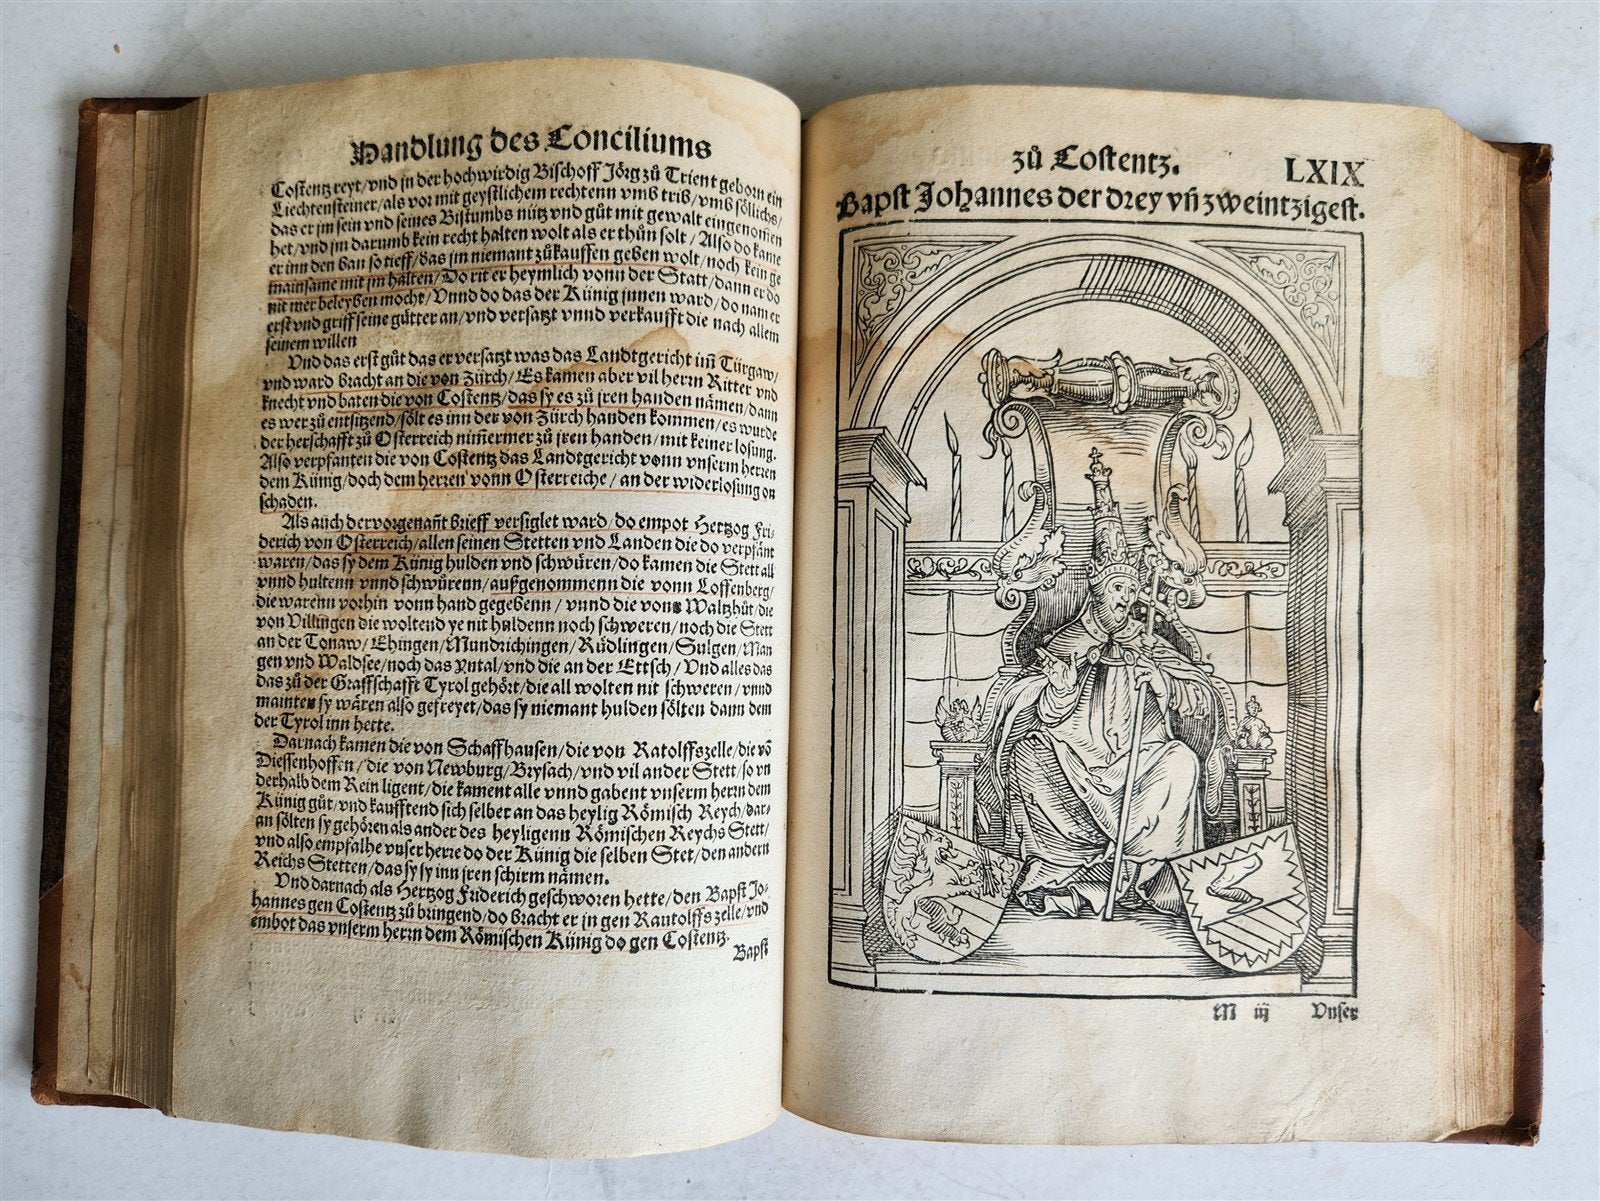 Handlung des Conciliums
Costentz reyt/vnd jn der hochwirdig Bischoff Jörg zů Trient geborn ein
Liechtensteiner/als vor mit geystlichem rechtenn vmb triß/vmb söllichs/
das er jm sein vnd seines Bistumbs nütz vnd gůt mit gewalt eingenom̃en
het/vnd jm darumb kein recht halten wolt als er thůn solt/Also do kame
er inn den ban so tieff/das jm niemant zůkauffen geben wolt/noch kein ge
mainsame mit jm halten/Do rit er heymlich vonn der Statt/dann er do
nit mer beleyben mocht/Vnnd do das der Künig jnnen ward/do nam er
erst vnd griff seine gütter an/vnd versatzt vnnd verkaufft die nach allem
seinem willen
Vnd das erst gůt das er versatzt was das Landtgericht im̃ Türgaw/
vnd ward bracht an die von Zürch/Es kamen aber vil herrn Ritter vnd
knecht vnd baten die von Costentz/das sy es zů jren handen nämen/dann
es wer zů entsitzend/sölt es inn der von Zürch handen kommen/es wurde
der herschafft zů Osterreich nim̃ermer zů jren handen/mit keiner losung.
Also verpfanten die von Costentz das Landtgericht vonn vnserm herren
dem Künig/doch dem herren vonn Osterreiche/an der widerlosung on
schaden.
Als auch der vorgenañt brieff versiglet ward/do empot Hertzog Fri⸗
derich von Osterreich/allen seinen Stetten vnd Landen die do verpfänt
waren/das sy dem Künig hulden vnd schwüren/do kamen die Stett all
vnnd hultenn vnnd schwůrenn/außgenommenn die vonn Loffenberg/
die warenn vorhin vonn hand gegebenn/vnnd die vonn Waltzhůt/die
von Villingen die woltend ye nit huldenn noch schweren/noch die Stett
an der Tonaw/Ehingen/Mundrichingen/Rüdlingen/Sulgen/Man
gen vnd Waldsee/noch das Yntal/vnd die an der Ettsch/Vnd alles das
das zů der Graffschafft Tyrol gehört/die all wolten nit schweren/vnnd
mainten sy wären also gefreyet/das sy niemant hulden sölten dann dem
der Tyrol inn hette.
Darnach kamen die von Schaffhausen/die von Ratolffszelle/die vō
Diessenhoffen/die von Newburg/Brysach/vnd vil ander Stett/so vn
derhalb dem Rein ligent/die kament alle vnnd gabent vnserm herrn dem
Künig gůt/vnd kaufftend sich selber an das heylig Römisch Reych/dar⸗
an sölten sy gehören als ander des heyligenn Römischen Reychs Stett/
vnd also empfalhe vnser herre do der Künig die selben Stet/den andern
Reichs Stetten/das sy sy inn jren schirm nämen.
Vnd darnach als Hertzog Friderich geschworen hette/den Bapst Jo⸗
hannes gen Costentz zů bringend/do bracht er jn gen Rautolffs zelle/vnd
embot das vnserm herrn dem Römischen Künig do gen Costentz.
Bapst
zů Costentz. LXIX
Bapst Johannes der drey vñ zweintzigest.
M iij Vnser